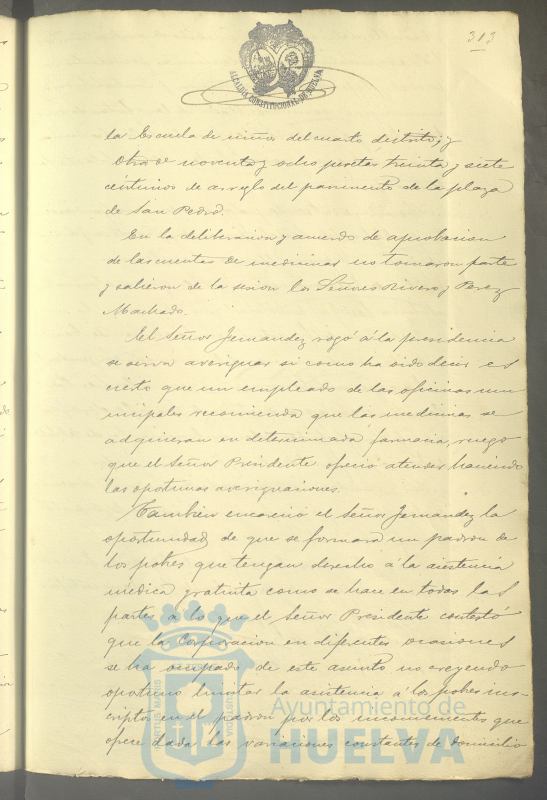 313
ALCALDIA CONSTITUCIONAL DE HUELVA
la Escuela de niños del cuarto distrito; y
otra de noventa y ocho pesetas treinta y siete
céntimos de arreglo del pavimento de la plaza
de San Pedro.
En la deliberacion y acuerdo de aprobacion
de las cuentas de medicinas no tomaron parte
y salieron de la sesion los Señores Rivero y Perez
Machado.
El Señor Fernandez rogó á la presidencia
se sirva averiguar si como ha oido decir es
cierto que un empleado de las oficinas mu
nicipales recomienda que las medicinas se
adquieran en determinada farmacia, ruego
que el Señor Presidente ofreció atender haciendo
las oportunas averiguaciones.
Tambien encareció el Señor Fernandez la
oportunidad de que se formara un padron de
los pobres que tengan derecho á la asistencia
médica gratuita como se hace en todas las
partes a lo que el Señor Presidente contestó
que la Corporacion en diferentes ocasiones
se ha ocupado de este asunto no creyendo
oportuno limitar la asistencia á los pobres ins-
criptos en el padron por los inconvenientes que
ofrece dada las variaciones constantes de domicilio
PORTUS MARIS
ET TERRAE CUSTODIA
Ayuntamiento de
HUELVA